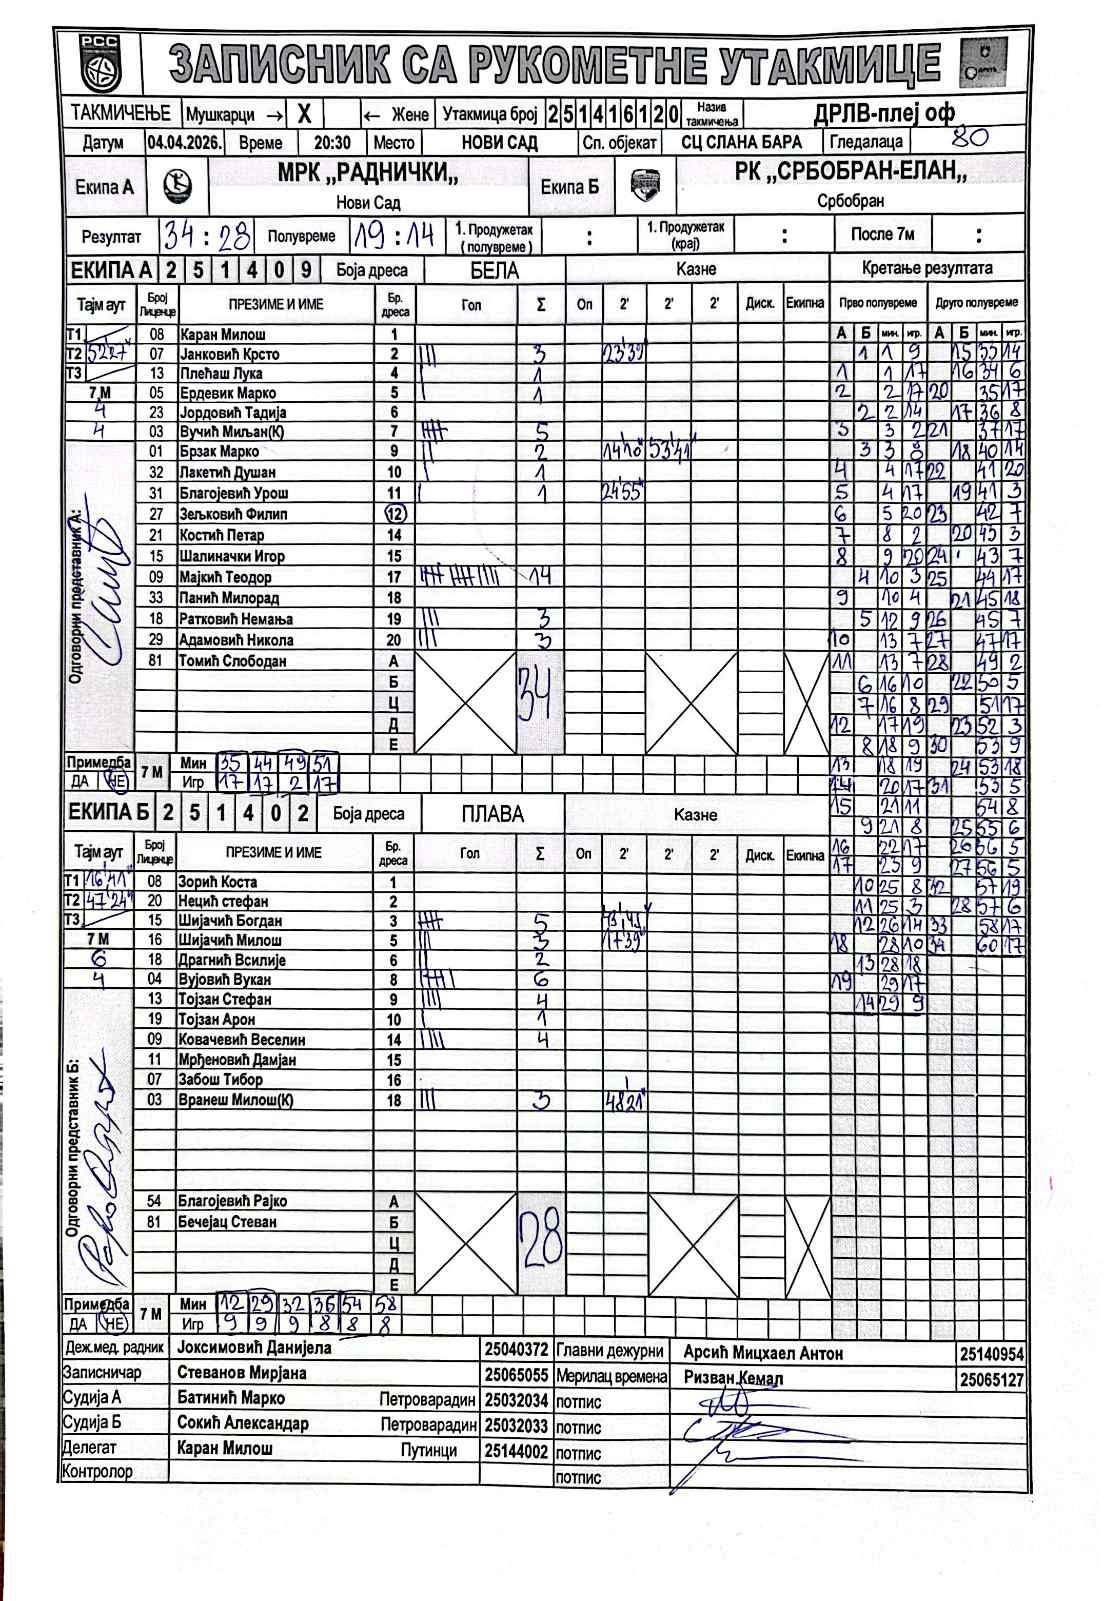 РСС
ЗАПИСНИК СА РУКОМЕТНЕ УТАКМИЦЕ
ТАКМИЧЕЊЕ Мушкарци → X ← Жене Утакмица број 2 5 1 4 1 6 1 2 0 Назив такмичења ДРЛВ-плеј оф
Датум 04.04.2026. Време 20:30 Место НОВИ САД Сп. објекат СЦ СЛАНА БАРА Гледалаца 80
Екипа А МРК „РАДНИЧКИ„ Нови Сад Екипа Б РК „СРБОБРАН-ЕЛАН„ Србобран
Резултат 34 : 28 Полувреме 19 : 14 1. Продужетак (полувреме) : 1. Продужетак (крај) : После 7м :
ЕКИПА А 2 5 1 4 0 9 Боја дреса БЕЛА Казне Кретање резултата
Тајм аут Број Лиценце ПРЕЗИМЕ И ИМЕ Бр. дреса Гол Σ Оп 2' 2' 2' Диск. Екипна Прво полувреме Друго полувреме
Т1 08 Каран Милош 1 А Б мин. игр. А Б мин. игр.
Т2 5227" 07 Јанковић Крсто 2 ||| 3 23'39" 1 1 9 15 33 14
Т3 13 Плећаш Лука 4 | 1 1 1 17 16 34 6
7 М 05 Ердевик Марко 5 | 1 2 2 17 20 35 17
4 23 Јордовић Тадија 6 2 2 14 17 36 8
4 03 Вучић Миљан(К) 7 5 3 3 2 21 37 17
01 Брзак Марко 9 || 2 14'10" 53'41" 3 3 8 18 40 14
32 Лакетић Душан 10 | 1 4 4 17 22 41 20
31 Благојевић Урош 11 | 1 24'55" 5 4 17 19 41 3
27 Зељковић Филип 12 6 5 20 23 42 7
21 Костић Петар 14 7 8 2 20 43 3
15 Шалиначки Игор 15 8 9 20 24 43 7
09 Мајкић Теодор 17 14 4 10 3 25 44 17
33 Панић Милорад 18 9 10 4 21 45 18
18 Ратковић Немања 19 ||| 3 5 12 9 26 45 7
29 Адамовић Никола 20 ||| 3 10 13 7 27 47 17
81 Томић Слободан А 34 11 13 7 28 49 2
Б 6 16 10 22 50 5
Ц 7 16 8 29 51 17
Д 12 17 19 23 52 3
Е 8 18 9 30 53 9
Одговорни представник А:
Примедба 7 М Мин 35 44 49 51 13 18 19 24 53 18
ДА НЕ Игр 17 17 2 17 14 20 17 31 53 5
ЕКИПА Б 2 5 1 4 0 2 Боја дреса ПЛАВА Казне 15 21 11 54 8
9 21 8 25 55 6
Тајм аут Број Лиценце ПРЕЗИМЕ И ИМЕ Бр. дреса Гол Σ Оп 2' 2' 2' Диск. Екипна 16 22 17 26 56 5
17 23 9 27 56 5
Т1 16'41" 08 Зорић Коста 1 10 25 8 32 57 19
Т2 47'24" 20 Нецић стефан 2 11 25 3 28 57 6
Т3 15 Шијачић Богдан 3 5 12 26 14 33 58 17
7 М 16 Шијачић Милош 5 ||| 3 17'39" 18 28 10 34 60 17
6 18 Драгнић Всилије 6 || 2 13 28 18
4 04 Вујовић Вукан 8 6 19 29 17
13 Тојзан Стефан 9 |||| 4 14 29 9
19 Тојзан Арон 10 | 1
09 Ковачевић Веселин 14 |||| 4
11 Мрђеновић Дамјан 15
07 Забош Тибор 16
03 Вранеш Милош(К) 18 ||| 3 48'21"
Одговорни представник Б:
54 Благојевић Рајко А 28
81 Бечејац Стеван Б
Ц
Д
Е
Примедба 7 М Мин 12 29 32 36 54 58
ДА НЕ Игр 9 9 9 8 8 8
Деж.мед. радник Јоксимовић Данијела 25040372 Главни дежурни Арсић Мицхаел Антон 25140954
Записничар Стеванов Мирјана 25065055 Мерилац времена Ризван Кемал 25065127
Судија А Батинић Марко Петроварадин 25032034 потпис
Судија Б Сокић Александар Петроварадин 25032033 потпис
Делегат Каран Милош Путинци 25144002 потпис
Контролор потпис